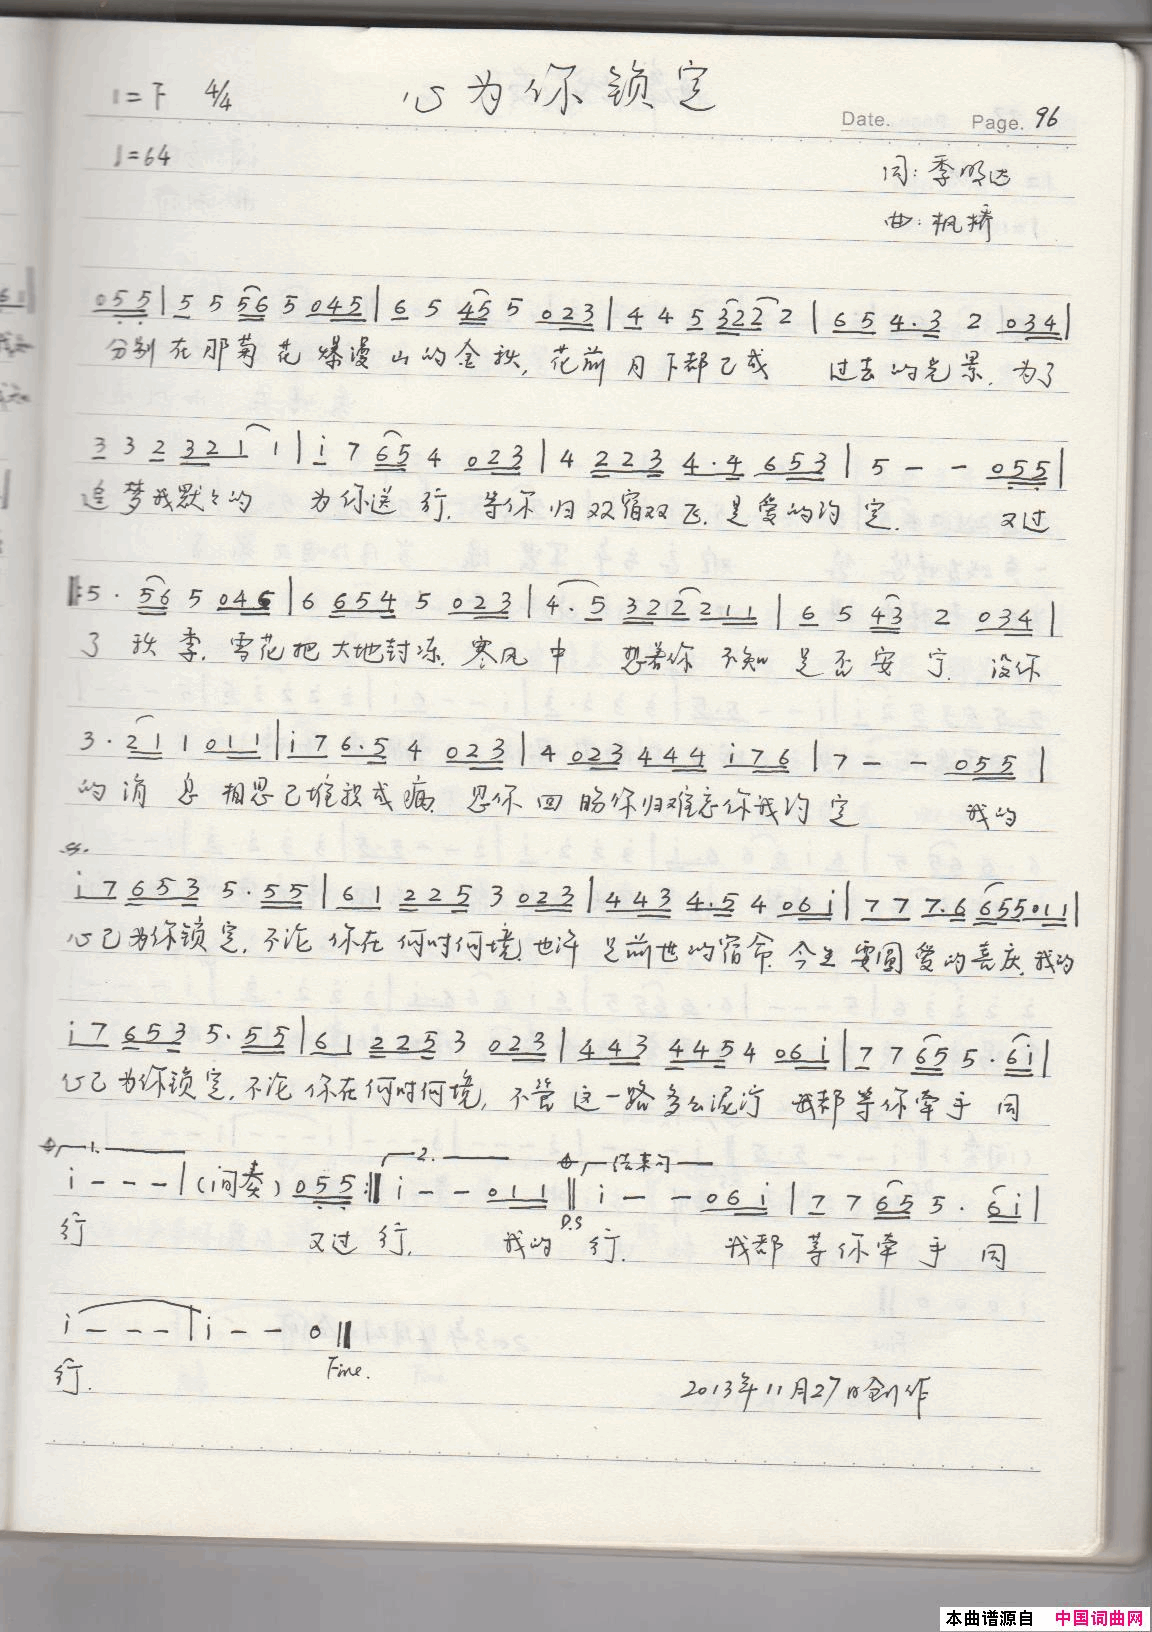 1=F 4/4 心为你锁定
Date. Page. 96
♩=64
词:季明达
曲:枫桥
055|5 5 56 5 045|6 5 45 5 023|4 4 5 322 2|6 5 4.3 2 034|
分别在那菊花爆漫山的金秋,花前月下都已成 过去的光景.为了
3 3 2 3 2 1 1|i 7 65 4 023|4 2 2 3 4.4 653|5 - - 055|
追梦我默々的 为你送行.等你归双宿双飞.是爱的约定. 又过
‖:5. 56 5 045|6 654 5 023|4. 5 322211|6 5 43 2 034|
了秋季.雪花把大地封冻.寒风中 想着你不知是否安宁.没你
3. 21 1 011|i 7 6.5 4 023|4 023 444 i76|7 - - 055|
的消息相思已堆积成病.思你回盼你归难忘你我约定 我的
i 7 653 5.55|61 2253 023|443 4.5 4 06i|77 7.6 655011|
心已为你锁定,不论你在何时何境,也许是前世的宿命.今生要圆爱的喜庆.我的
i 7 653 5.55|61 2253 023|443 445 4 06i|7 7 65 5.6i|
心已为你锁定,不论你在何时何境,不管这一路多么泥泞 我都等你牵手同
1. 2. 结束句
i - - -|(间奏) 055:‖i - - 011‖i - - 06i|7 7 65 5. 6i|
D.S
行 又过行. 我的行. 我都等你牵手同
i - - -|i - - 0‖
行. Fine.
2013年11月27日创作
本曲谱源自 中国词曲网